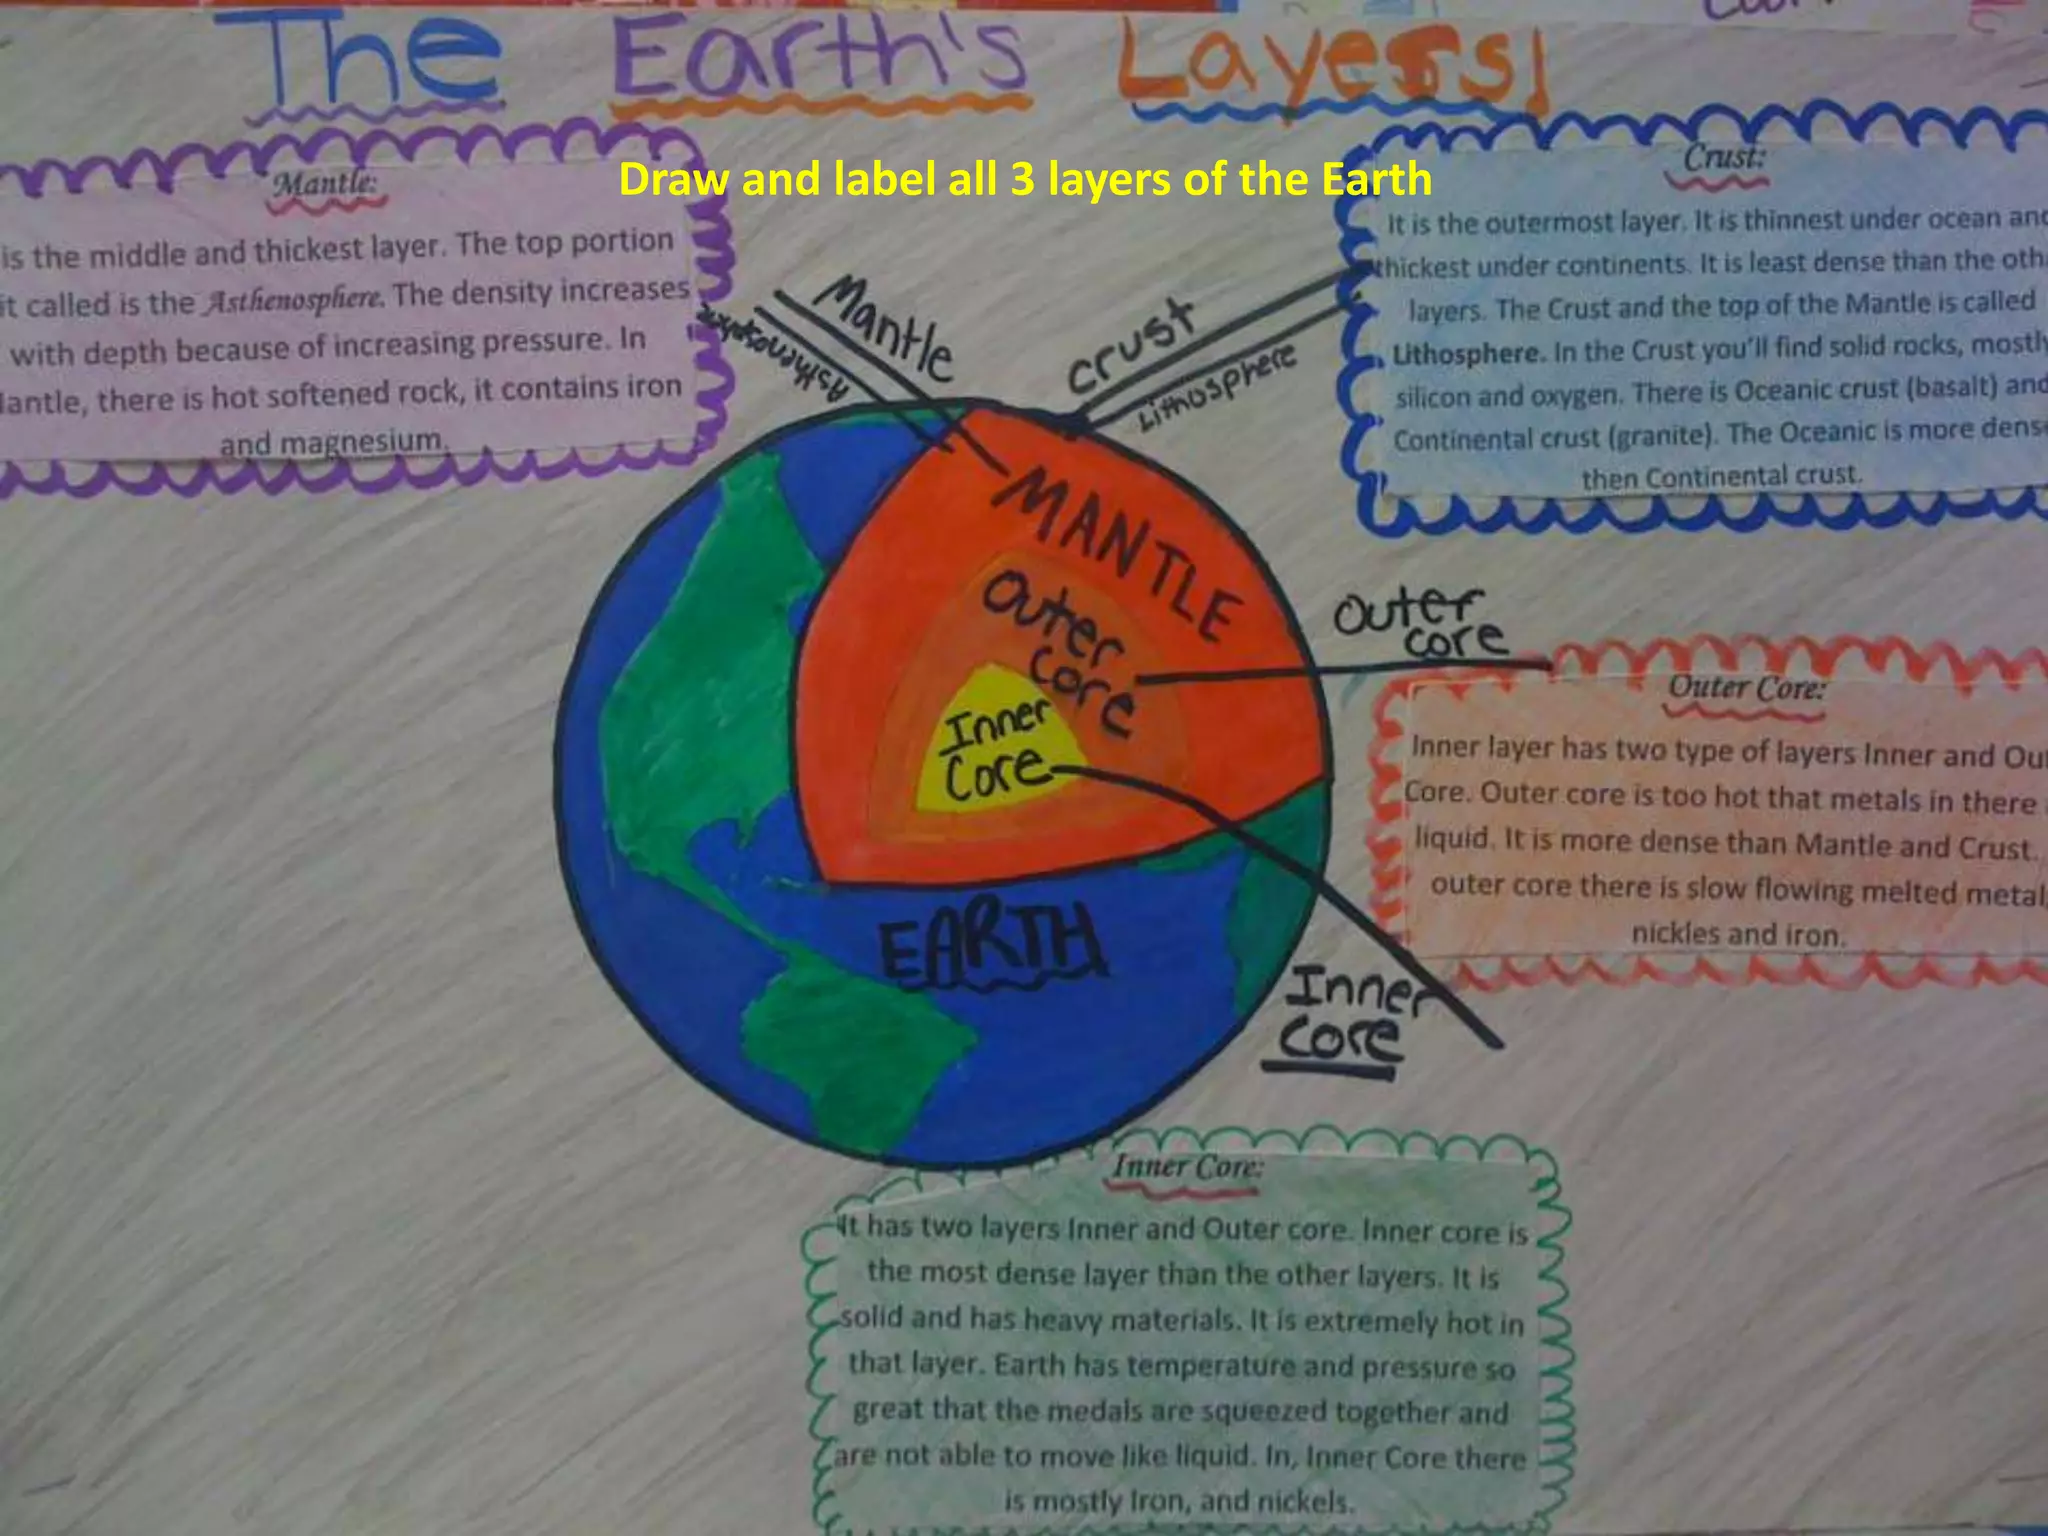 The Earth's Layers!
Draw and label all 3 layers of the Earth
Mantle:
is the middle and thickest layer. The top portion
it called is the Asthenosphere. The density increases
with depth because of increasing pressure. In
Mantle, there is hot softened rock, it contains iron
and magnesium.
Crust:
It is the outermost layer. It is thinnest under ocean and
thickest under continents. It is least dense than the
layers. The Crust and the top of the Mantle is called
Lithosphere. In the Crust you'll find solid rocks, mostly
silicon and oxygen. There is Oceanic crust (basalt) and
Continental crust (granite). The Oceanic is more dense
then Continental crust.
Mantle
Asthenosphere
Crust
Lithosphere
MANTLE
Outer
Core
Inner
Core
EARTH
Outer
Core
Inner
Core
Outer Core:
Inner layer has two type of layers Inner and
Core. Outer core is too hot that metals in there
liquid. It is more dense than Mantle and Crust.
outer core there is slow flowing melted metal,
nickles and iron.
Inner Core:
It has two layers Inner and Outer core. Inner core is
the most dense layer than the other layers. It is
solid and has heavy materials. It is extremely hot in
that layer. Earth has temperature and pressure so
great that the medals are squeezed together and
are not able to move like liquid. In, Inner Core there
is mostly Iron, and nickels.